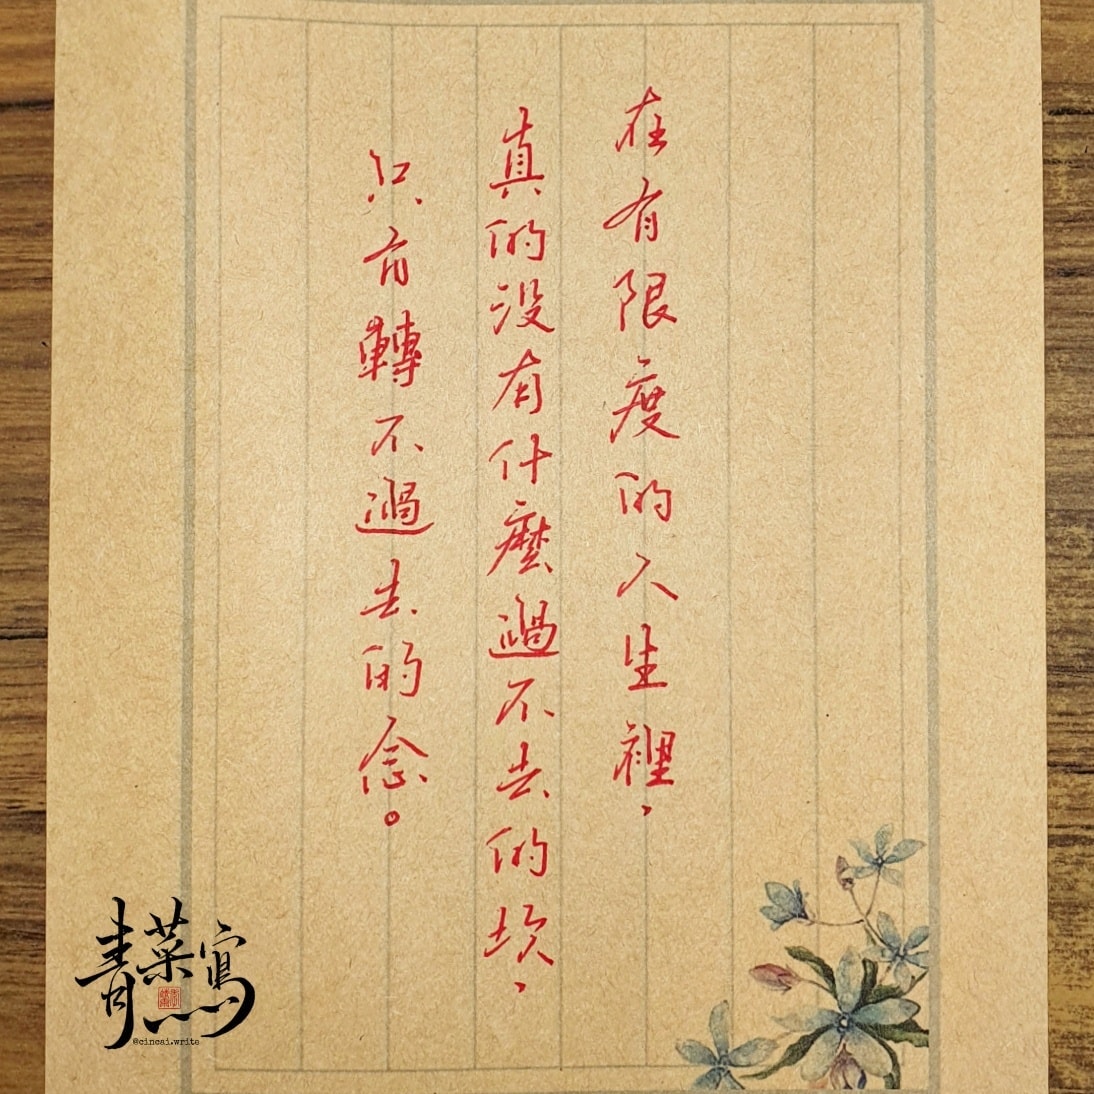 在有限度的人生裡，
真的沒有什麼過不去的坎，
只有轉不過去的念。
青菜寫
@cincai.write